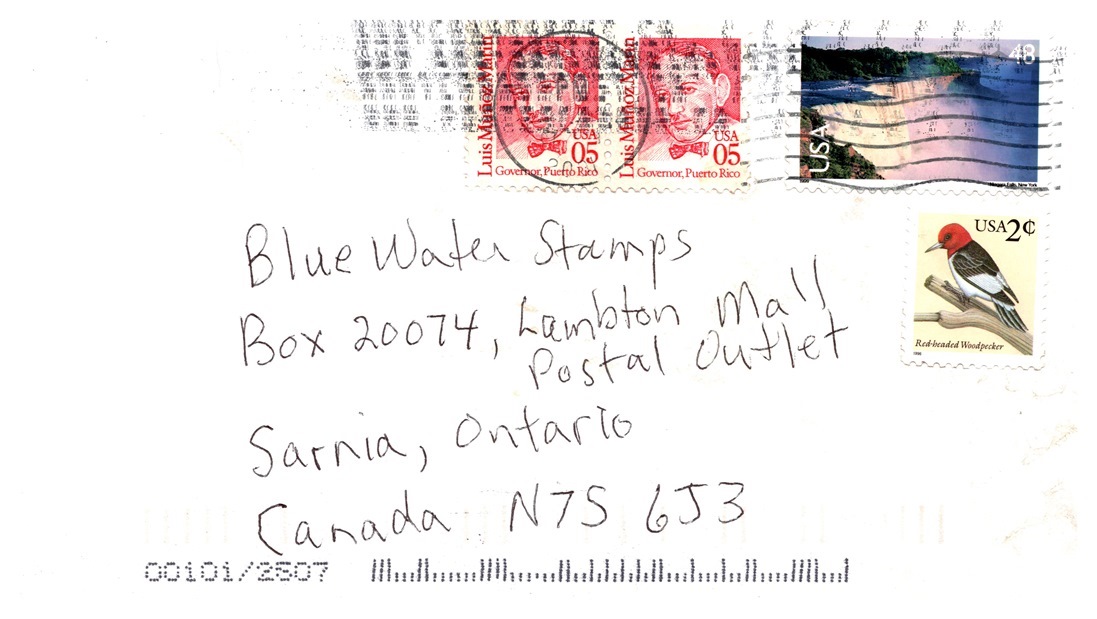 Luis Muñoz Marin
USA
05
Governor, Puerto Rico
Luis Muñoz Marin
USA
05
Governor, Puerto Rico
48
USA
Niagara Falls, New York
USA 2¢
Red-headed Woodpecker
1996
Blue Water Stamps
Box 20074, Lambton Mall
Postal Outlet
Sarnia, Ontario
Canada N7S 6J3
00101/2807